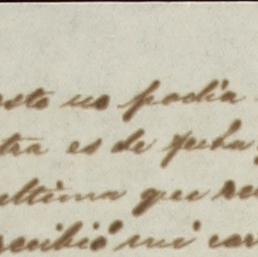 esto no podia
tra es de fecha
ultima que re
recibió mi car